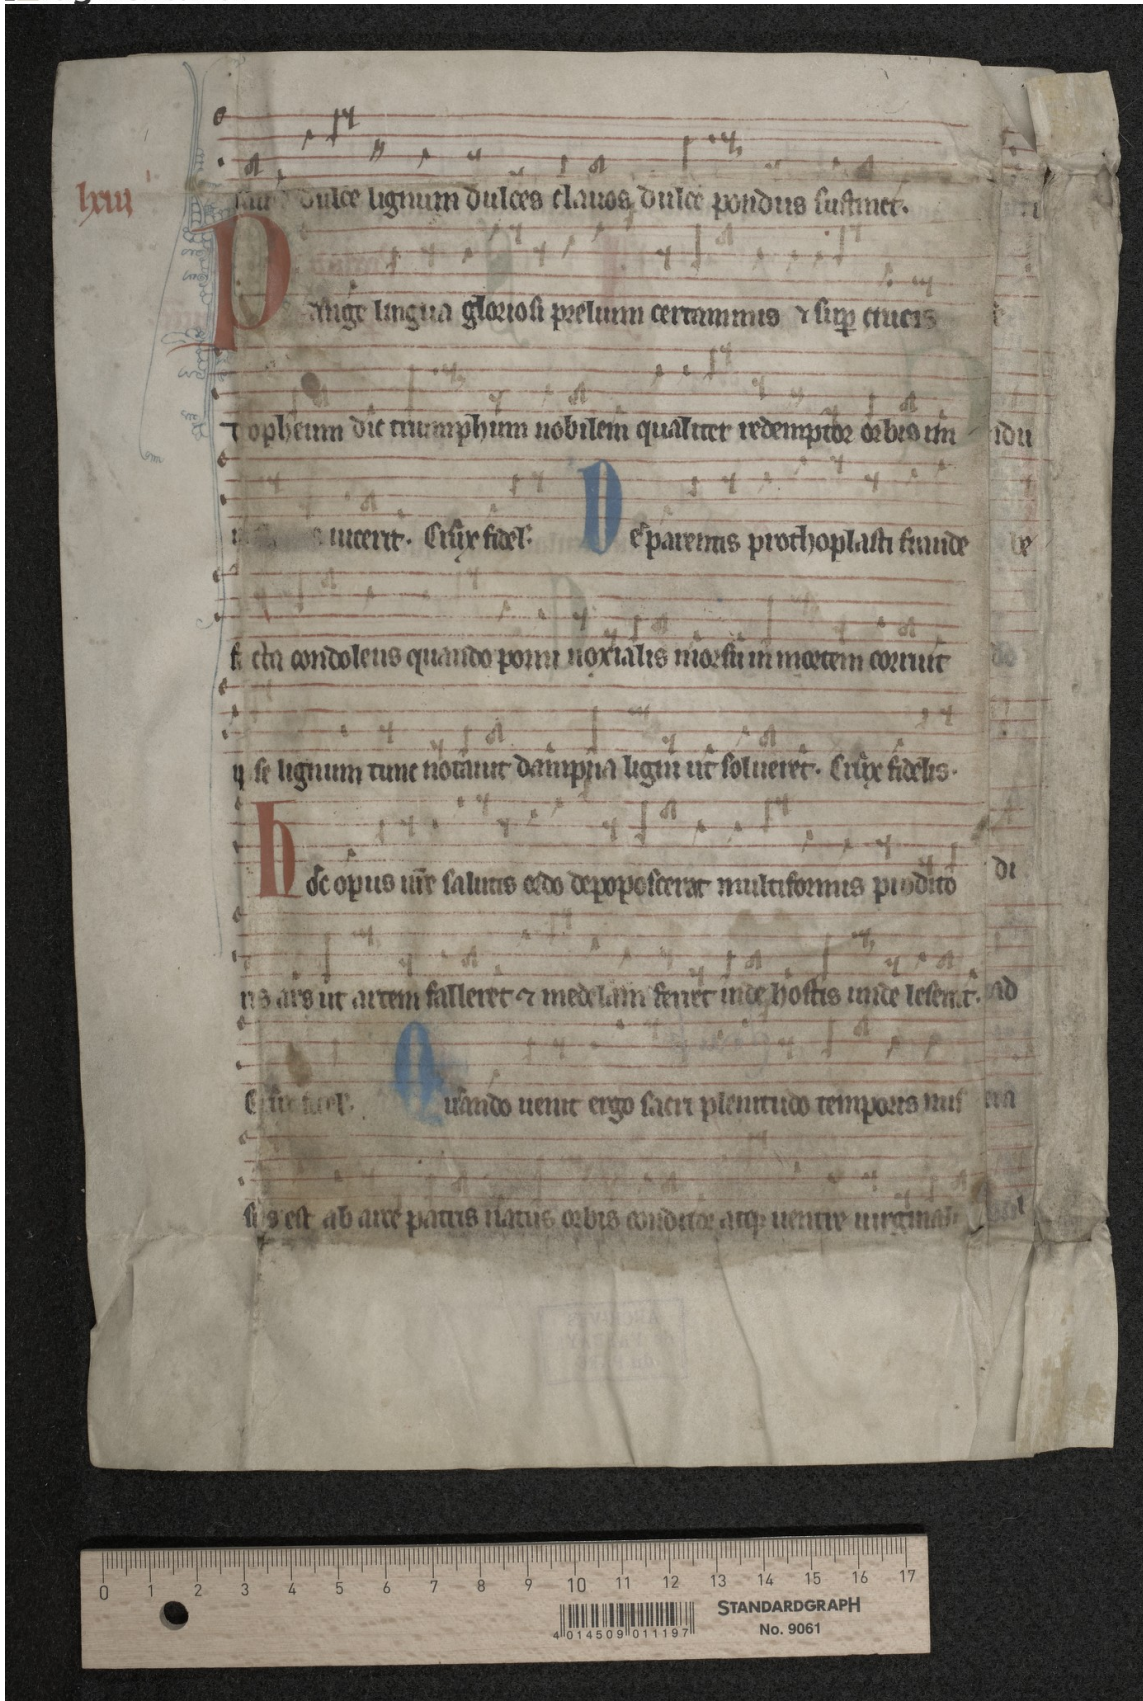 lxiii
dulce lignum dulces clauos dulce pondus sustinet.
Pange lingua gloriosi prelium certaminis ⁊ sup crucis
tropheum dic triumphum nobilem qualiter redemptor orbis im
uicerit. Crux fidel. De parentis prothoplasti fraude
facta condolens quando pomi noxialis morsu in mortem corruit
ipse lignum tunc notauit dampna ligni ut solueret. Crux fidelis.
Hoc opus nre salutis ordo depoposcerat multiformis prodito
ris ars ut artem falleret ⁊ medelam ferret inde hostis unde leserat.
Crux fidel. Quando uenit ergo sacri plenitudo temporis mis
sus est ab arce patris natus orbis conditor atq uentre uirginali
ARCHIVES
0 1 2 3 4 5 6 7 8 9 10 11 12 13 14 15 16 17
STANDARDGRAPH
No. 9061
4 014509 011197